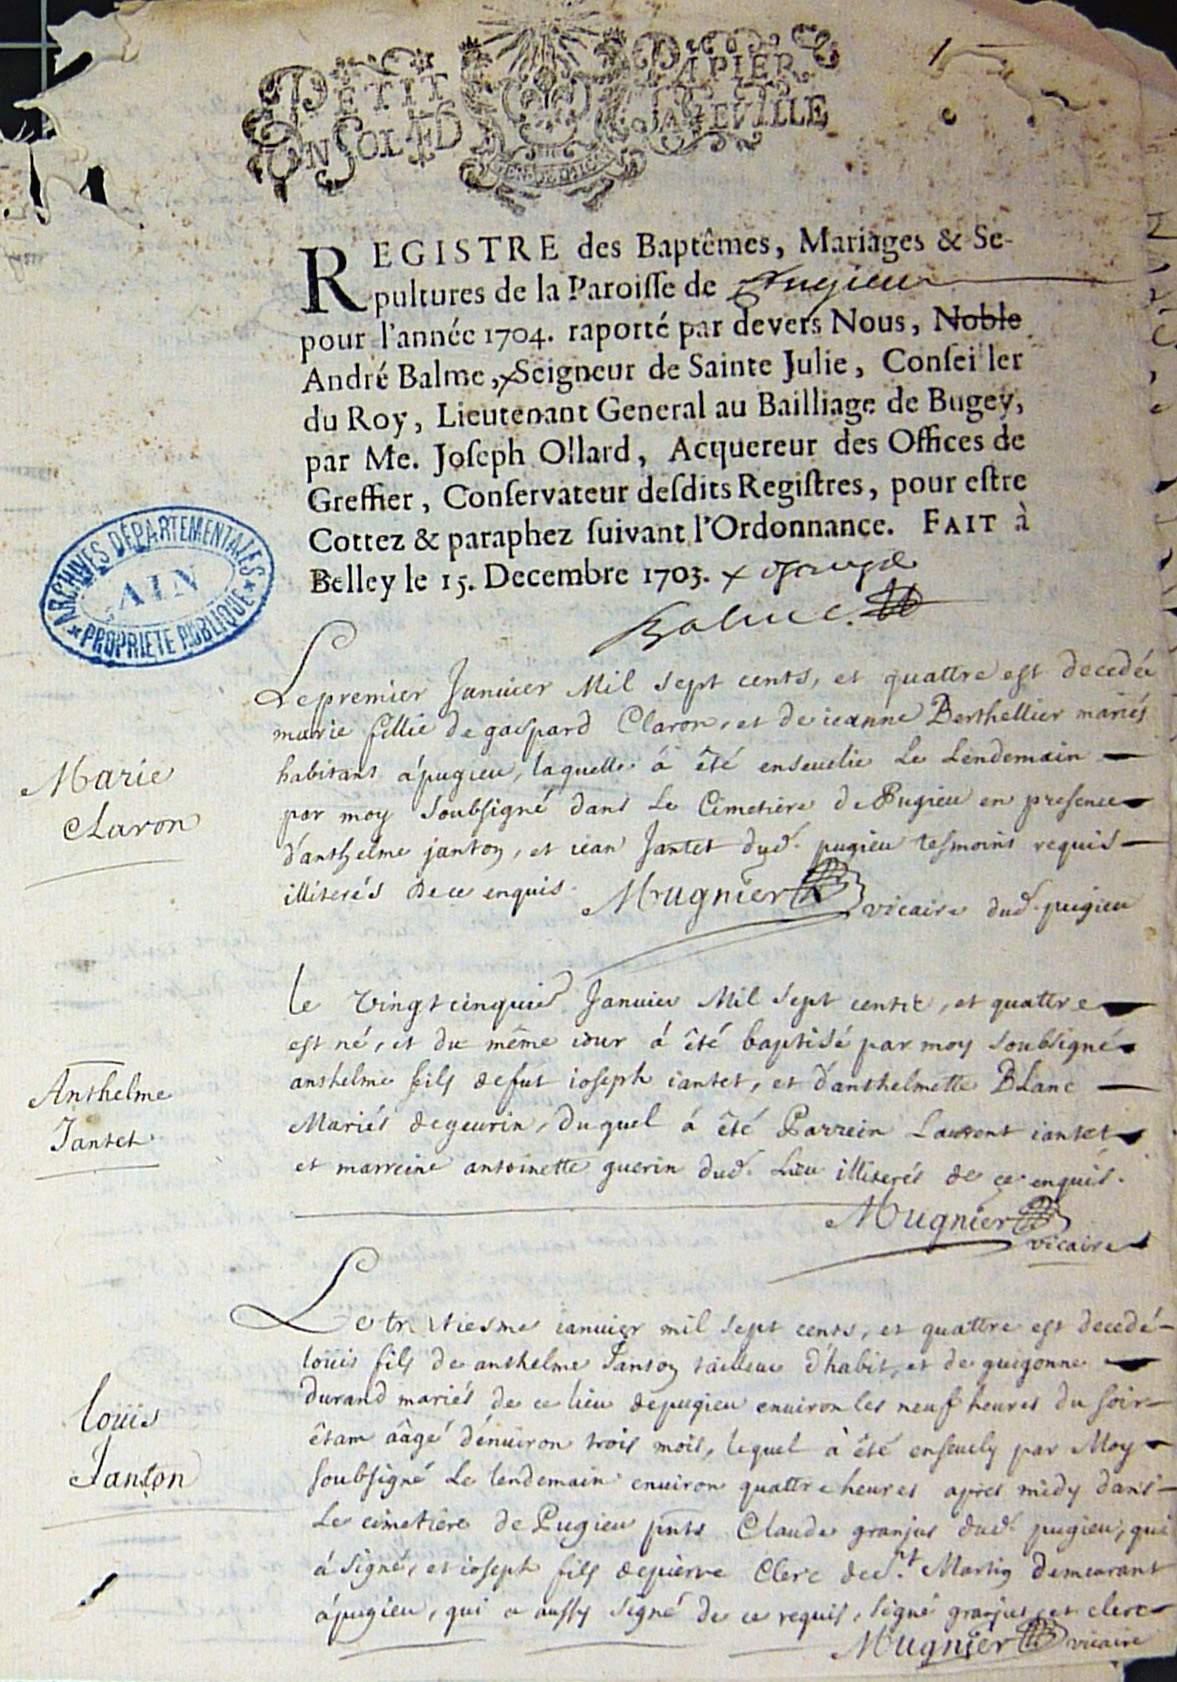 PETIT PAPIER
UN SOL 4D LA FEVILLE
GEN. DE DIION
1
REGISTRE des Baptêmes, Mariages & Se-
pultures de la Paroisse de Pugieu
pour l'année 1704. raporté par devers Nous, Noble
André Balme, x Seigneur de Sainte Julie, Consei ler
du Roy, Lieutenant General au Bailliage de Bugey,
par Me. Joseph Ollard, Acquereur des Offices de
Greffier, Conservateur desdits Registres, pour estre
Cottez & paraphez suivant l'Ordonnance. FAIT à
Belley le 15. Decembre 1703. x
Balme
ARCHIVES DÉPARTEMENTALES
AIN
PROPRIÉTÉ PUBLIQUE
Marie
Claron
Le premier Januier Mil sept cents, et quattre est decedée
marie fillie de gaspard Claron, et de ieanne Berthellier mariés
habitant à pugieu, laquelle à été enseuelie Le Lendemain
par moy soubsigné dans Le Cimetière de Pugieu en presence
d'anthelme janton, et iean Jantet dud. pugieu tesmoins requis
illiterés de ce enquis. Mugnier vicaire dud. pugieu
Anthelme
Jantet
le vingt cinquie Januier Mil sept cents, et quattre
est né, et du même iour á été baptisé par moy soubsigné
anthelme fils de fut ioseph iantet, et d'anthelmette Blanc
Mariés de geurin, duquel á été Parrein Laurent iantet
et marreine antoinette guerin dud. Lieu illiterés de ce enquis.
Mugnier
vicaire
Loüis
Janton
Le trentiesme ianuier mil sept cents, et quattre est decedé
loüis fils de anthelme Janton tailleur d'habit, et de guigonne
durand mariés de ce lieu de pugieu enuiron les neuf heures du soir
êtant ââgé d'enuiron trois mois, lequel à été enseuely par Moy
soubsigné Le lendemain enuiron quattre heures apres midy dans
Le cimetière de Pugieu pnts Claude granjus dud. pugieu, qui
á signé, et ioseph fils de pierre Clerc de St. Martin demeurant
á pugieu, qui a aussy signé de ce requis, signé granjus, et clerc
Mugnier vicaire